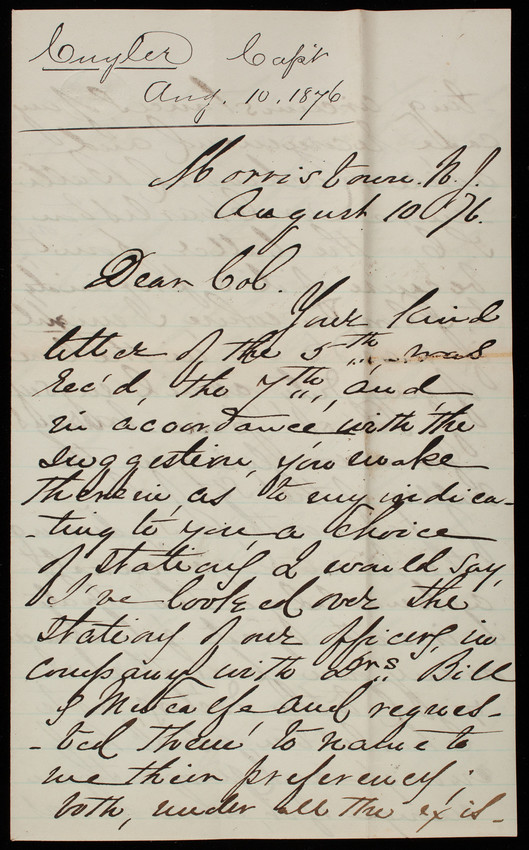 Cuyler Capt
Aug. 10. 1876
Morristown. N.J.
August 10 76.
Dear Col.
Your kind
letter of the 5th, was
rec'd, the 7th, and,
in accordance with the
suggestion, you make
therein, as to my indica-
-ting to you, a choice
of stations, I would say,
I've looked over the
stations of our officers, in
company with Drs. Bill
& Metcalfe and reques-
-ted them, to name to
me their preferences;
both, under all the exis-